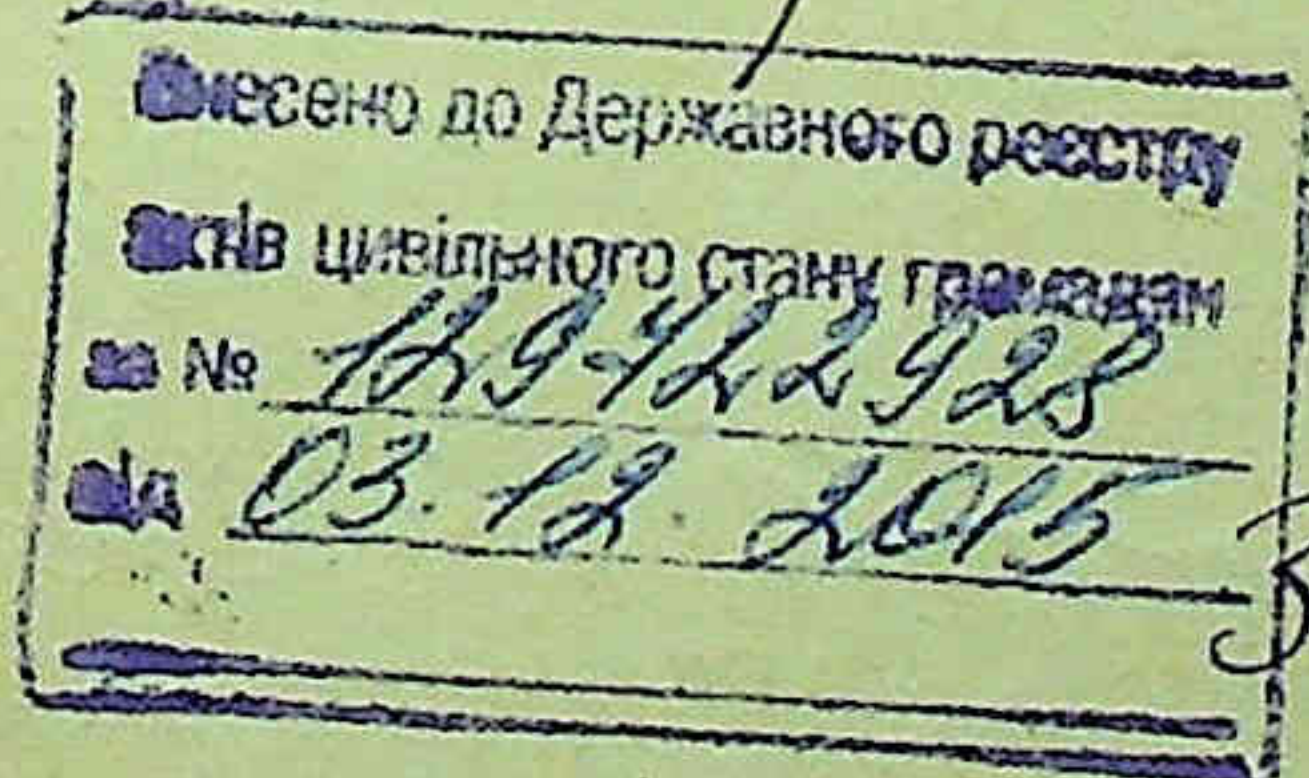 Внесено до Державного реєстру
актів цивільного стану громадян
за № 129422928
від 03.12.2015